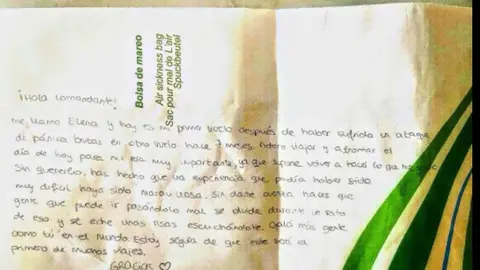 Bolsa de mareo
Air sickness bag
Sac pour mal de l'air
Spuckbeutel
¡Hola comandante!
me llamo Elena y hoy es mi primer vuelo después de haber sufrido un ataque
de pánico brutas en otro vuelo hace 7 meses. Adoro viajar y afrontar el
día de hoy para mi era muy importante, ya que supone volver a hacer lo que me
Sin quererlo, has hecho que una experiencia que podía haber sido
muy dificil haya sido maravillosa. Sin darte cuenta haces que
gente que puede ir pasándolo mal se olvide durante un rato
de eso y se eche unas risas escuchándote. Ojalá más gente
como tú en el mundo. Estoy segura de que este será el
primero de muchos viajes.
GRACIAS ♡